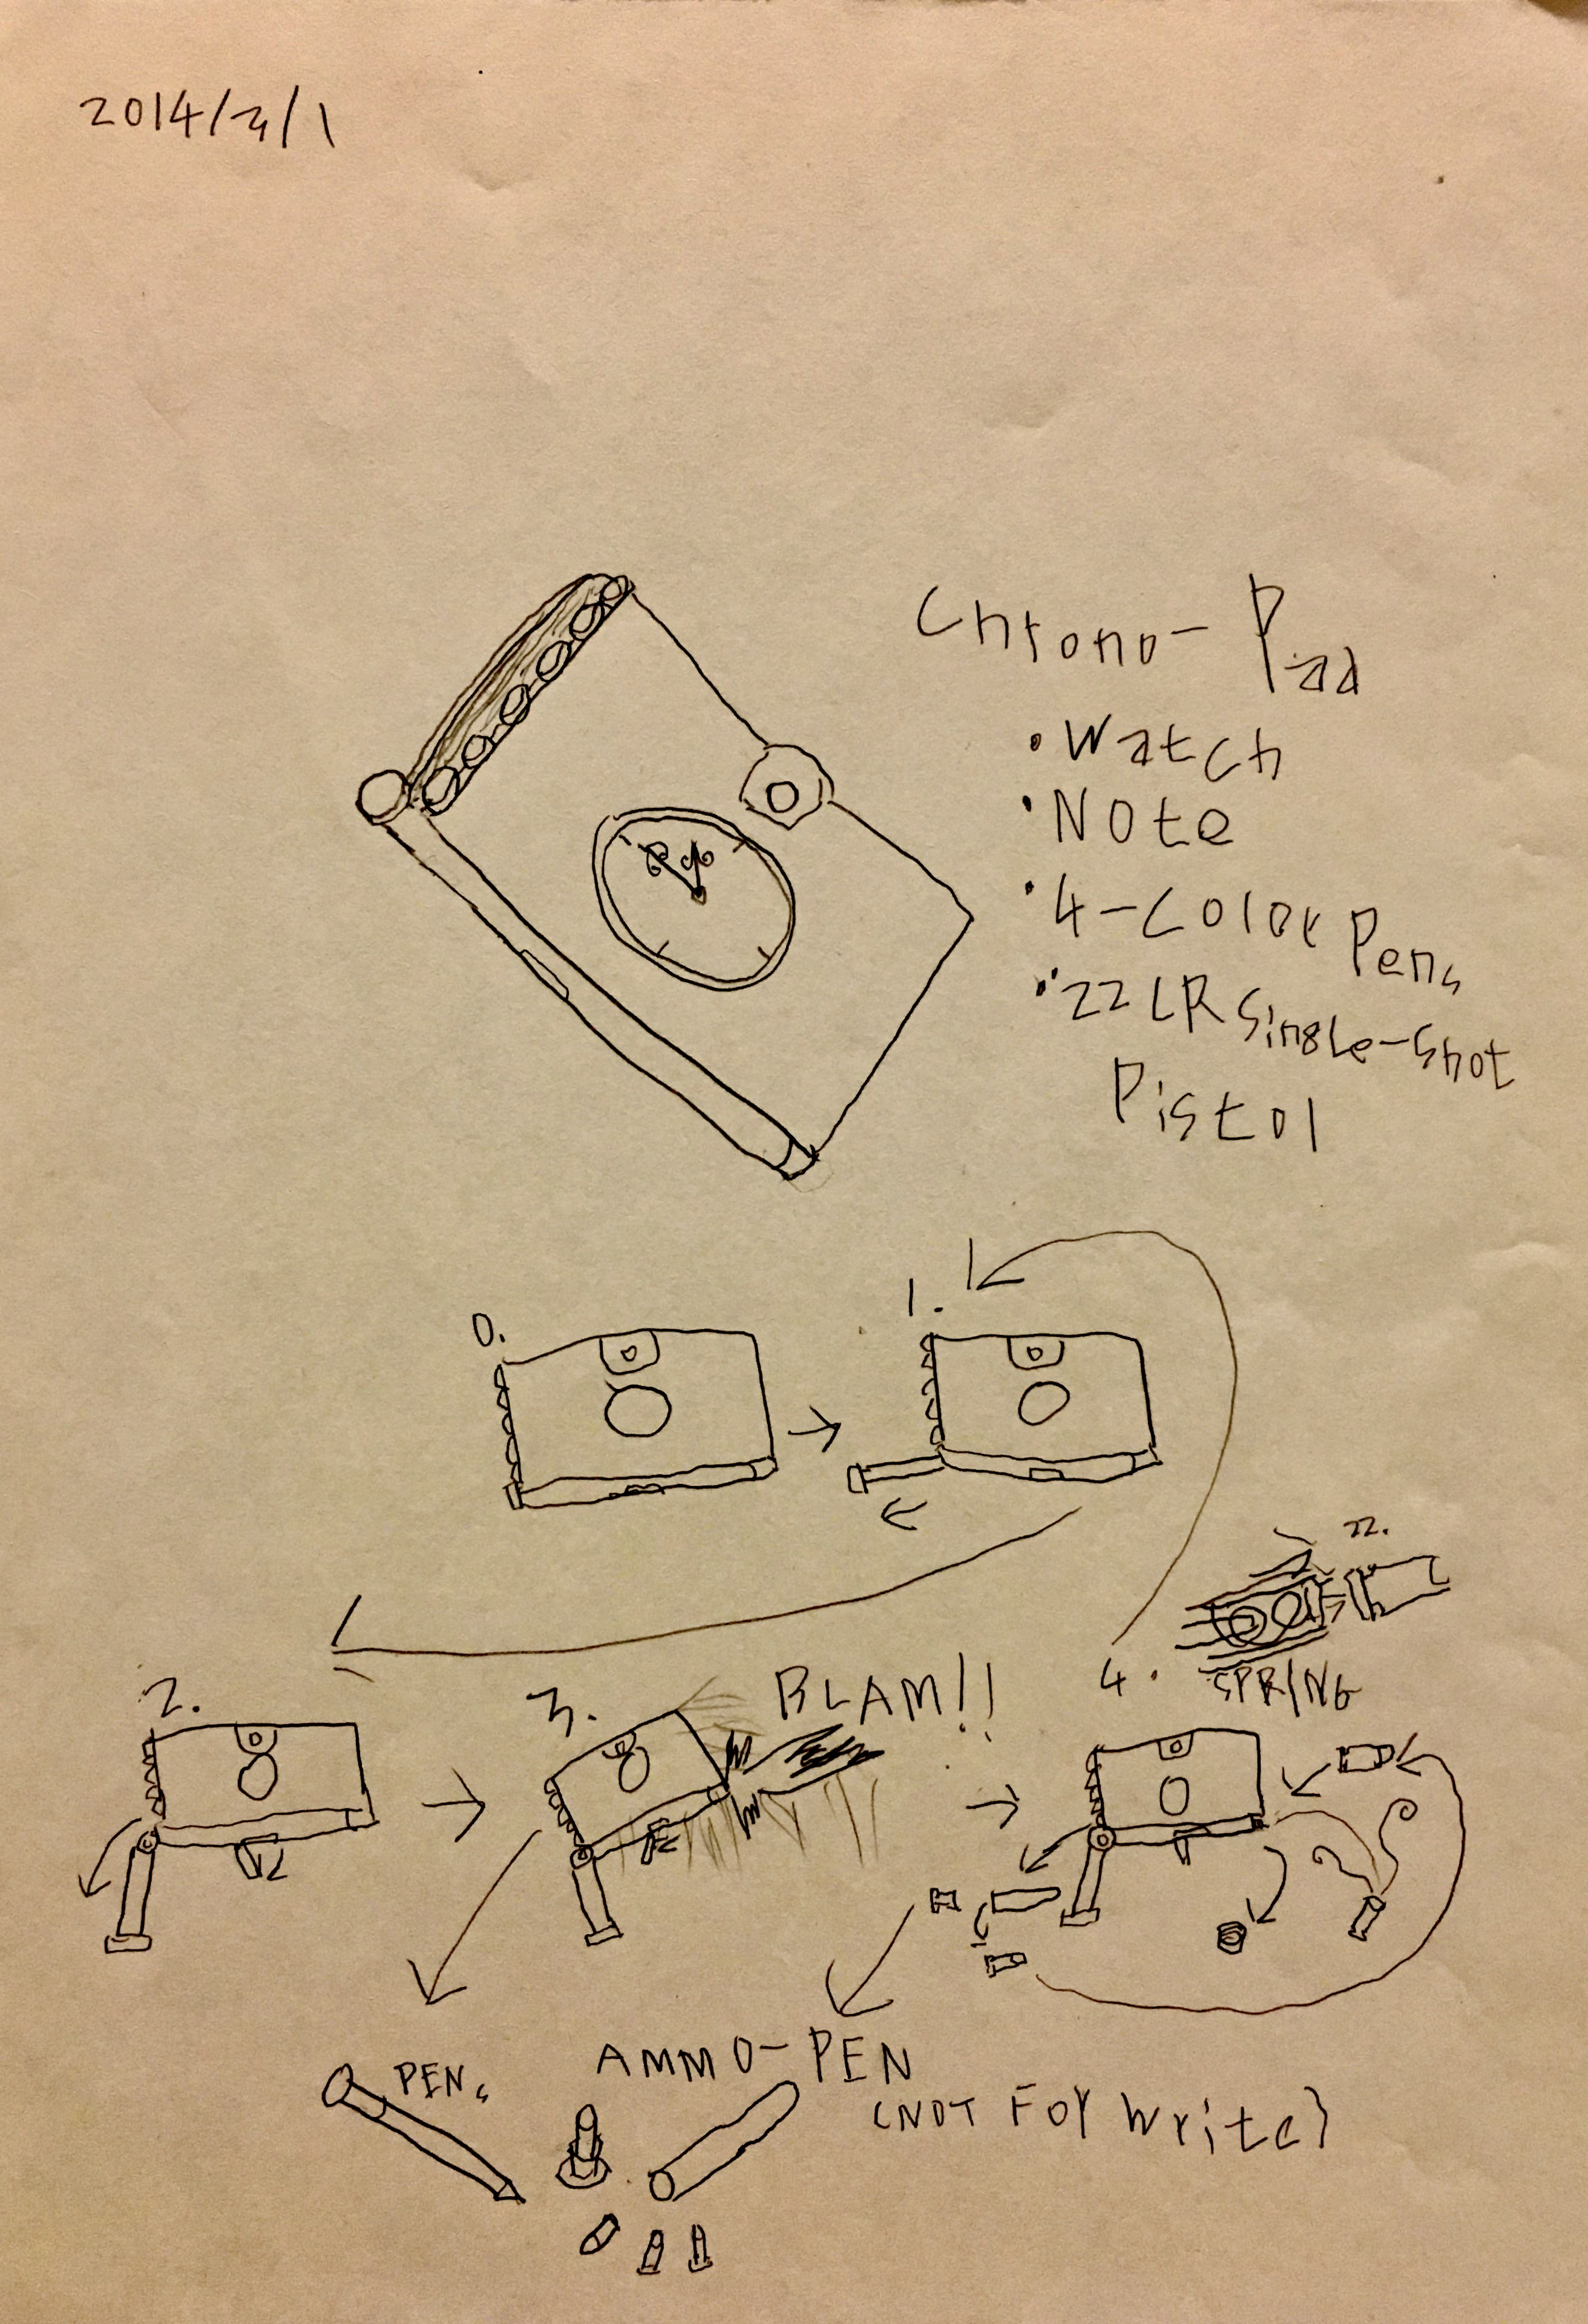 2014/3/1
Chrono-Pad
• Watch
• Note
• 4-Color Pens
• 22LR Single-Shot
Pistol
0.
1.
22.
SPRING
2.
3.
BLAM!!
4.
PENs
AMMO-PEN
(NOT FOr Write)